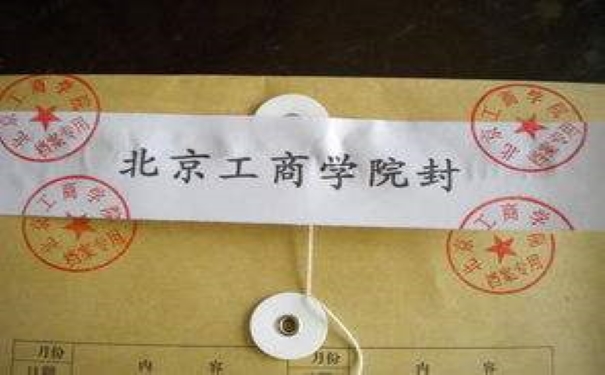 工商学院
档案专用
北京工商学院
档案专用
北京工商学院封
北京工商学院
档案专用
北京工商学院
档案专用
月份
内容
月份
内容
日期